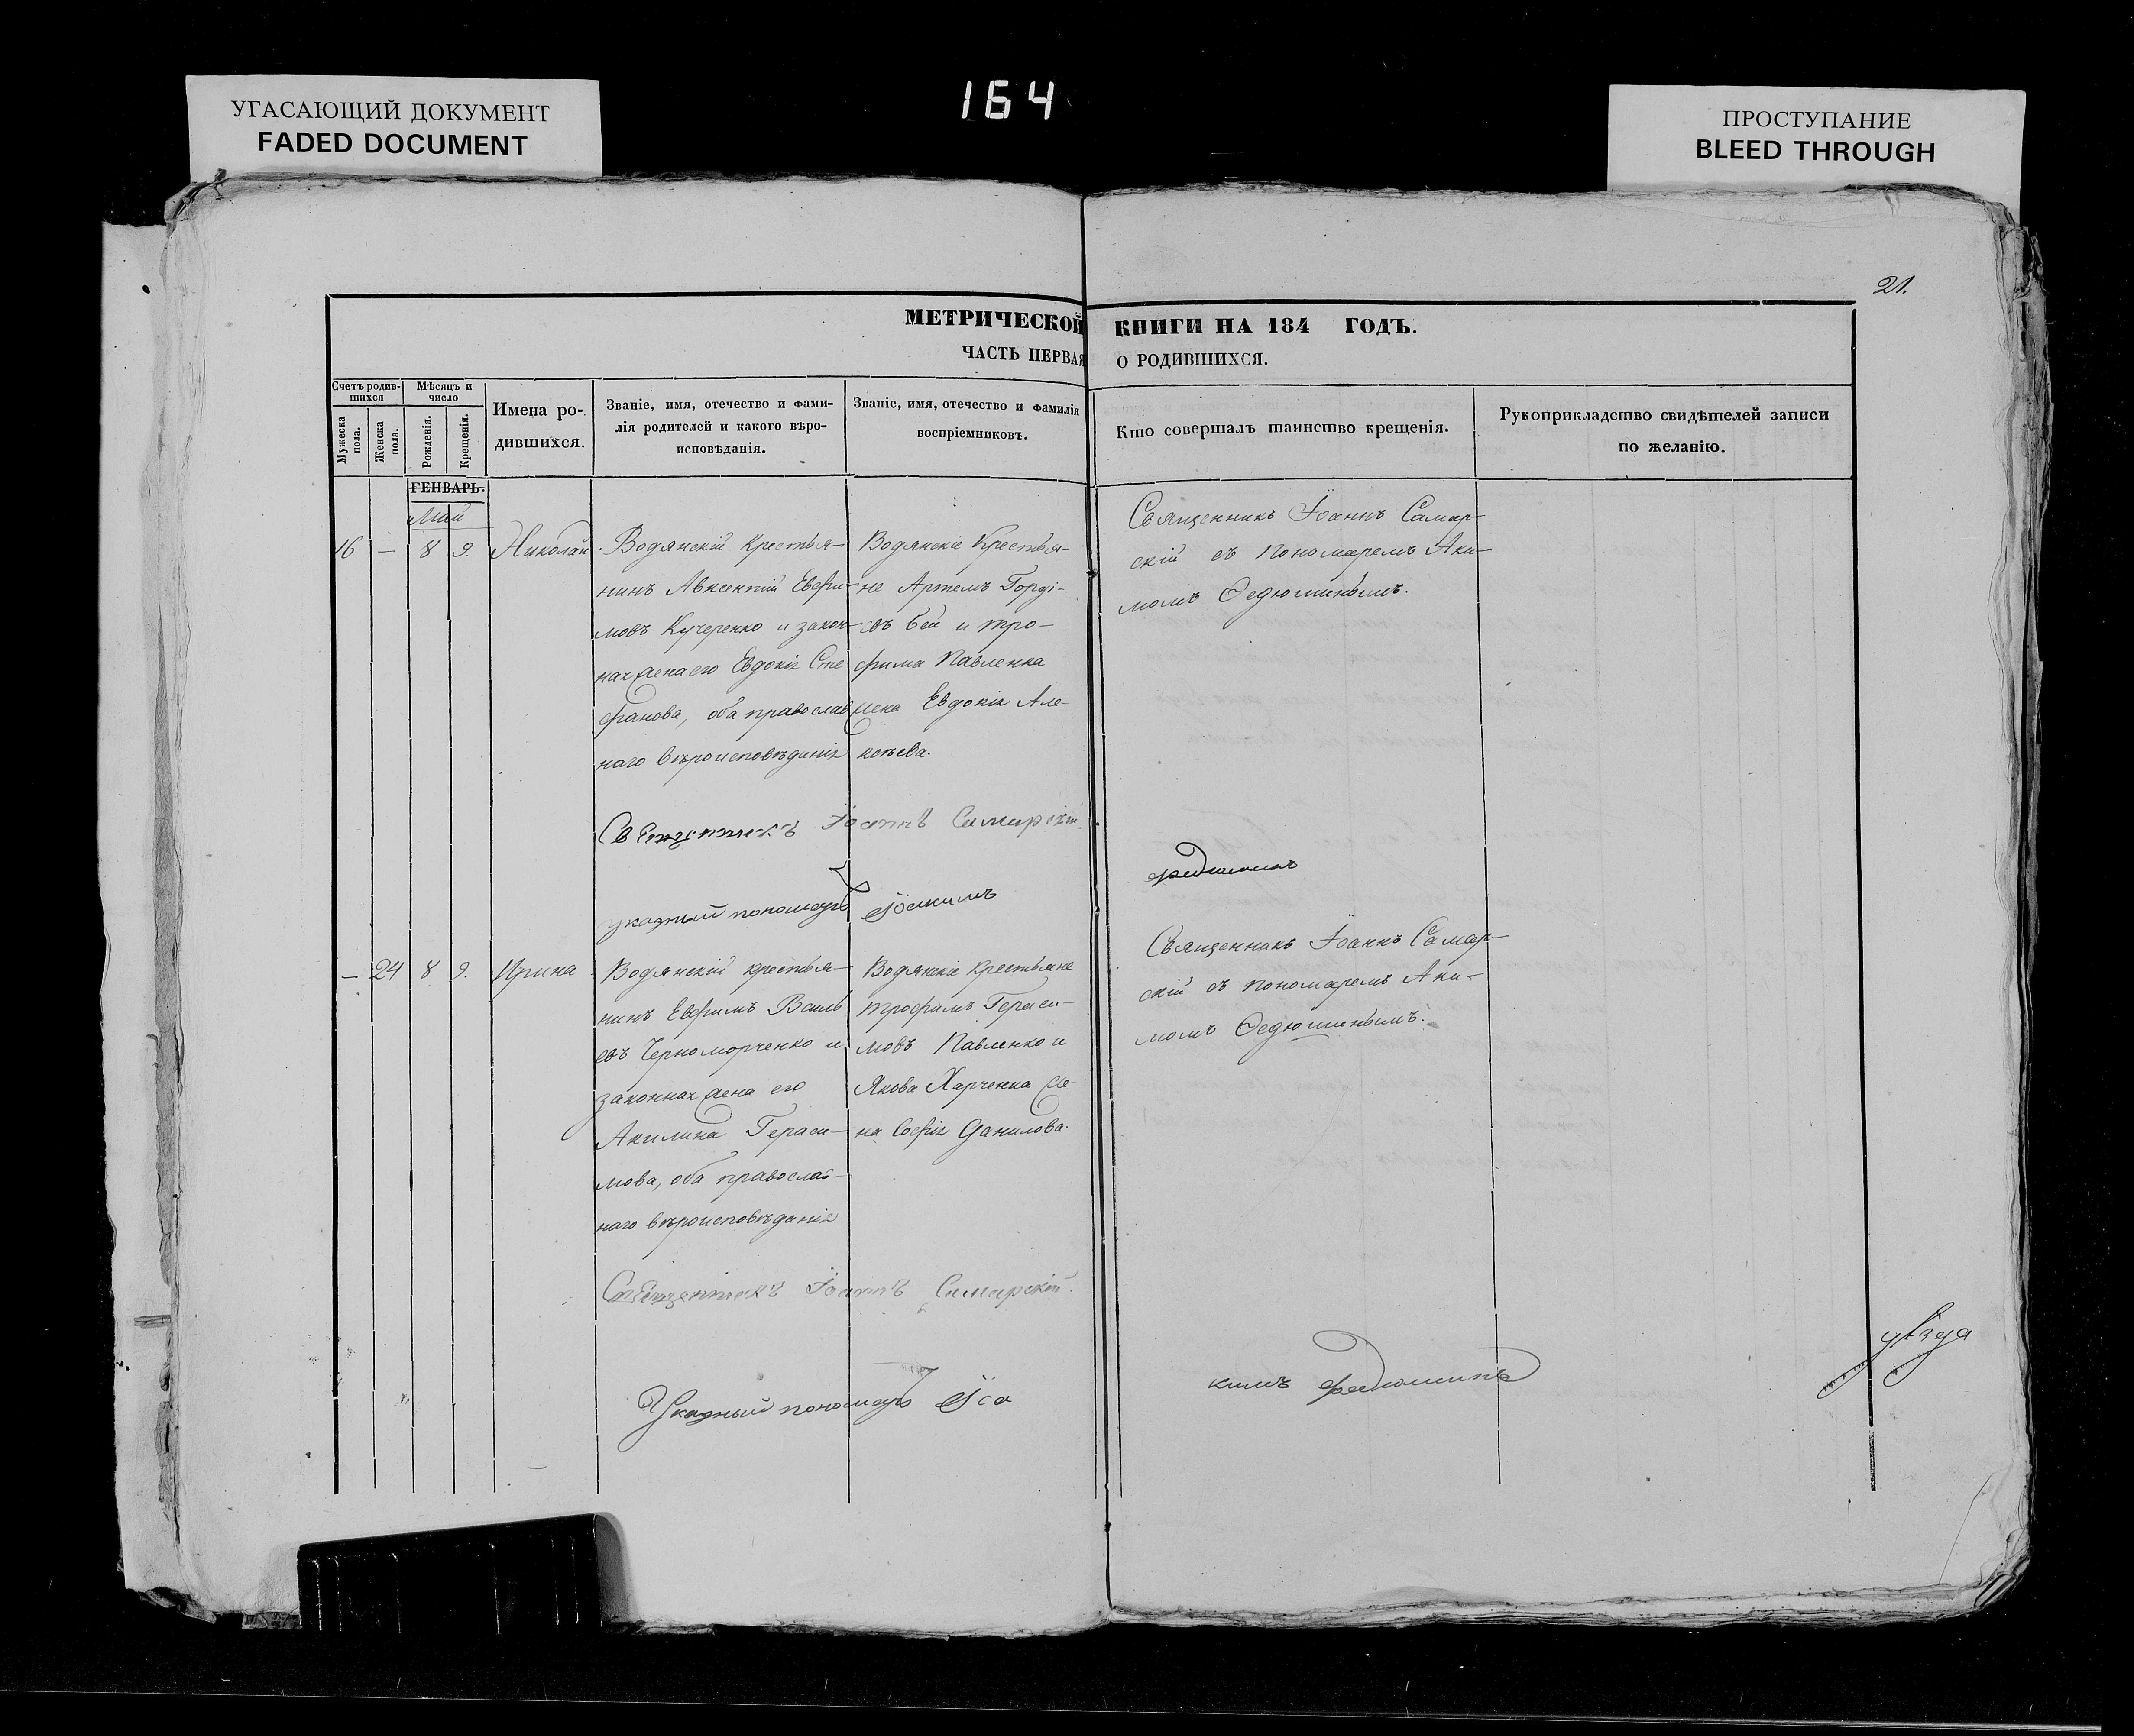 УГАСАЮЩИЙ ДОКУМЕНТ
FADED DOCUMENT
164
ПРОСТУПАНИЕ
BLEED THROUGH
21.
МЕТРИЧЕСКОЙ КНИГИ НА 184 ГОДЪ.
ЧАСТЬ ПЕРВАЯ О РОДИВШИХСЯ.
Счетъ родив-
шихся
Мужеска
пола.
Женска
пола.
Мѣсяцъ и
число
Рожденія.
Крещенія.
Имена ро-
дившихся.
Званіе, имя, отечество и фами-
лія родителей и какого вѣро-
исповѣданія.
Званіе, имя, отечество и фамилія
воспріемниковъ.
Кто совершалъ таинство крещенія.
Рукоприкладство свидѣтелей записи
по желанію.
ГЕНВАРЬ.
Май
16 — 8 9. Николай
Водянскій крестья-
нинъ Авксентій Евфи-
мовъ Кучеренко и закон-
ная жена его Евдокія Сте
фанова, оба православ
наго вѣроисповѣданія
Водянскіе крестья-
не Артемъ Горді-
евъ Бей и Тро-
фима Павленка
жена Евдокія Але-
ксѣева.
Священникъ Іоаннъ Самар-
скій съ пономаремъ Аки-
момъ Ѳедюшинымъ.
Священникъ Іоаннъ Самарскій
указный пономарь Іоакимъ Федюшинъ
— 24 8 9. Ирина
Водянскій крестья-
нинъ Евфимъ Василь
евъ Черноморченко и
законная жена его
Акилина Гераси-
мова, оба православ-
наго вѣроисповѣданія
Водянскіе крестьяне
Трофимъ Гераси-
мовъ Павленко и
Якова Харченка же-
на Софія Данилова.
Священникъ Іоаннъ Самар-
скій съ пономаремъ Аки-
момъ Ѳедюшинымъ.
Священникъ Іоаннъ Самарскій.
Указный пономарь Іоа кимъ Федюшинъ
уѣзда